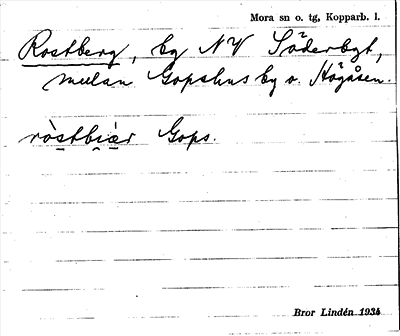 Mora sn o. tg, Kopparb. l.
Rostberg, bg NV Söderbgt,
mulan Gopshus by o. Högåsen.
ròstbiær Gops.
Bror Lindén 1934